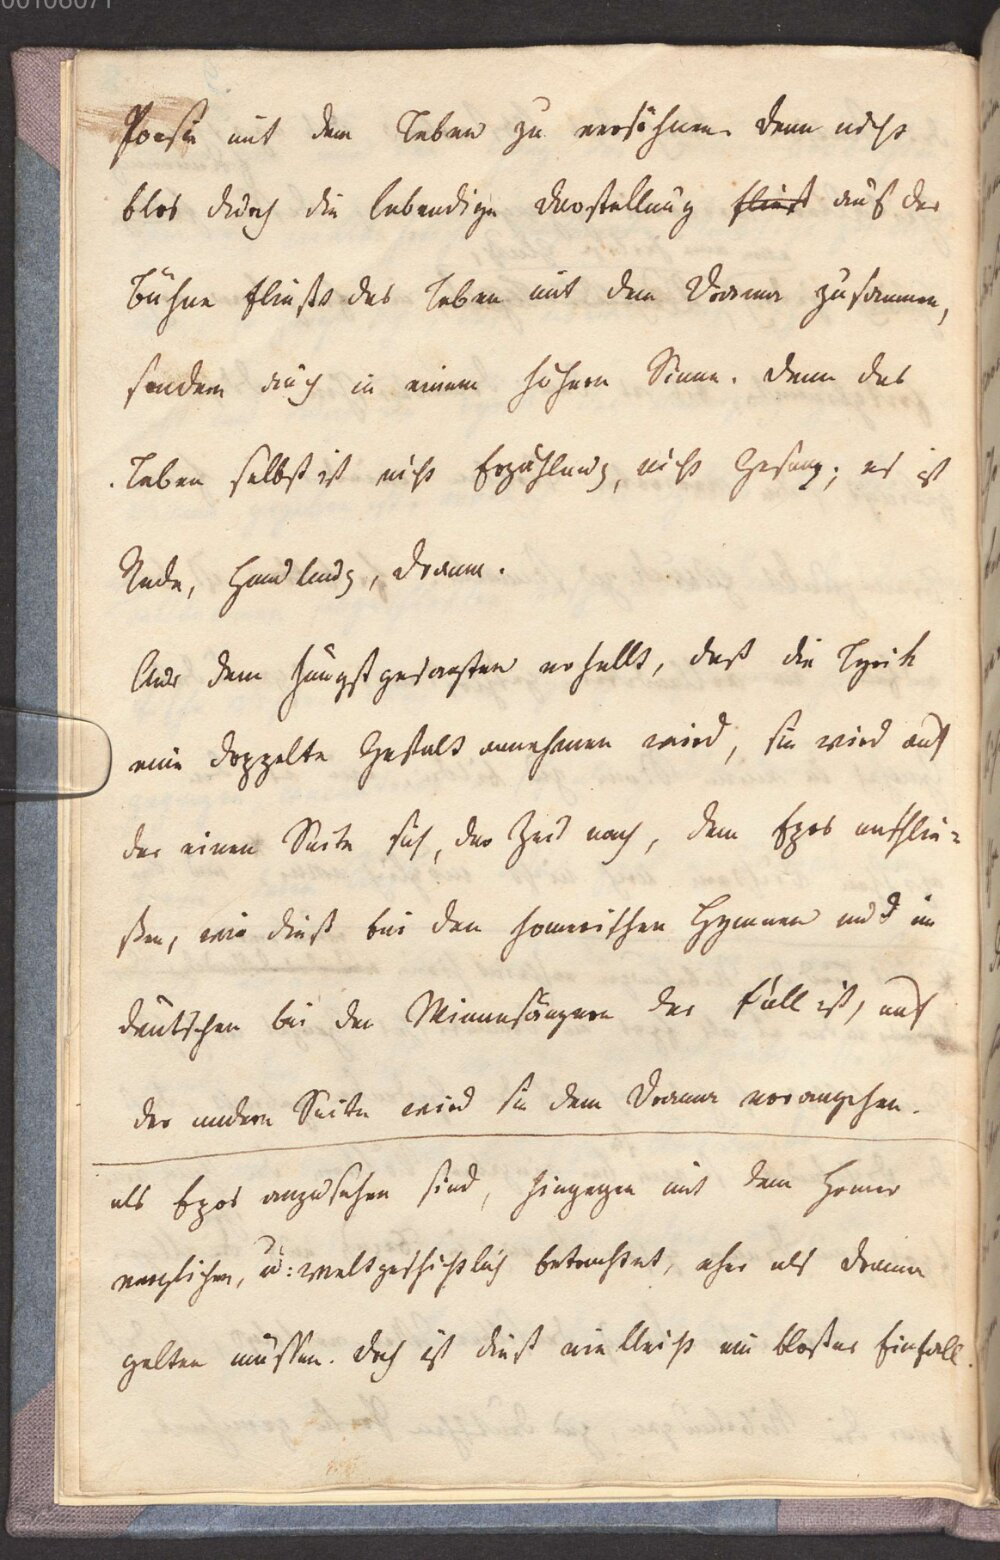 00106071
Poesie mit dem Leben zu versöhnen. Denn nicht
blos durch die lebendige Darstellung fliest auf der
Bühne fließt das Leben mit dem Drama zusammen,
sondern auch in einem höhern Sinne. Denn das
Leben selbst ist nicht Erzählung, nicht Gesang; es ist
Rede, Handlung, Drama.
Aus dem jüngst gesagten erhellt, daß die Lyrik
eine doppelte Gestalt annehmen wird, sie wird auf
der einen Seite sich, der Zeit nach, dem Epos anschlie-
ßen, wie dieß bei den homerischen Hymnen und im
deutschen bei den Minnesängern der Fall ist, auf
der andern Seite wird sie dem Drama vorangehen.
als Epos anzusehen sind, hingegen mit dem Homer
verglichen, u: weltgeschichtlich betrachtet, eher als Drama
gelten müssen. Doch ist dieß vielleicht ein bloßer Einfall.